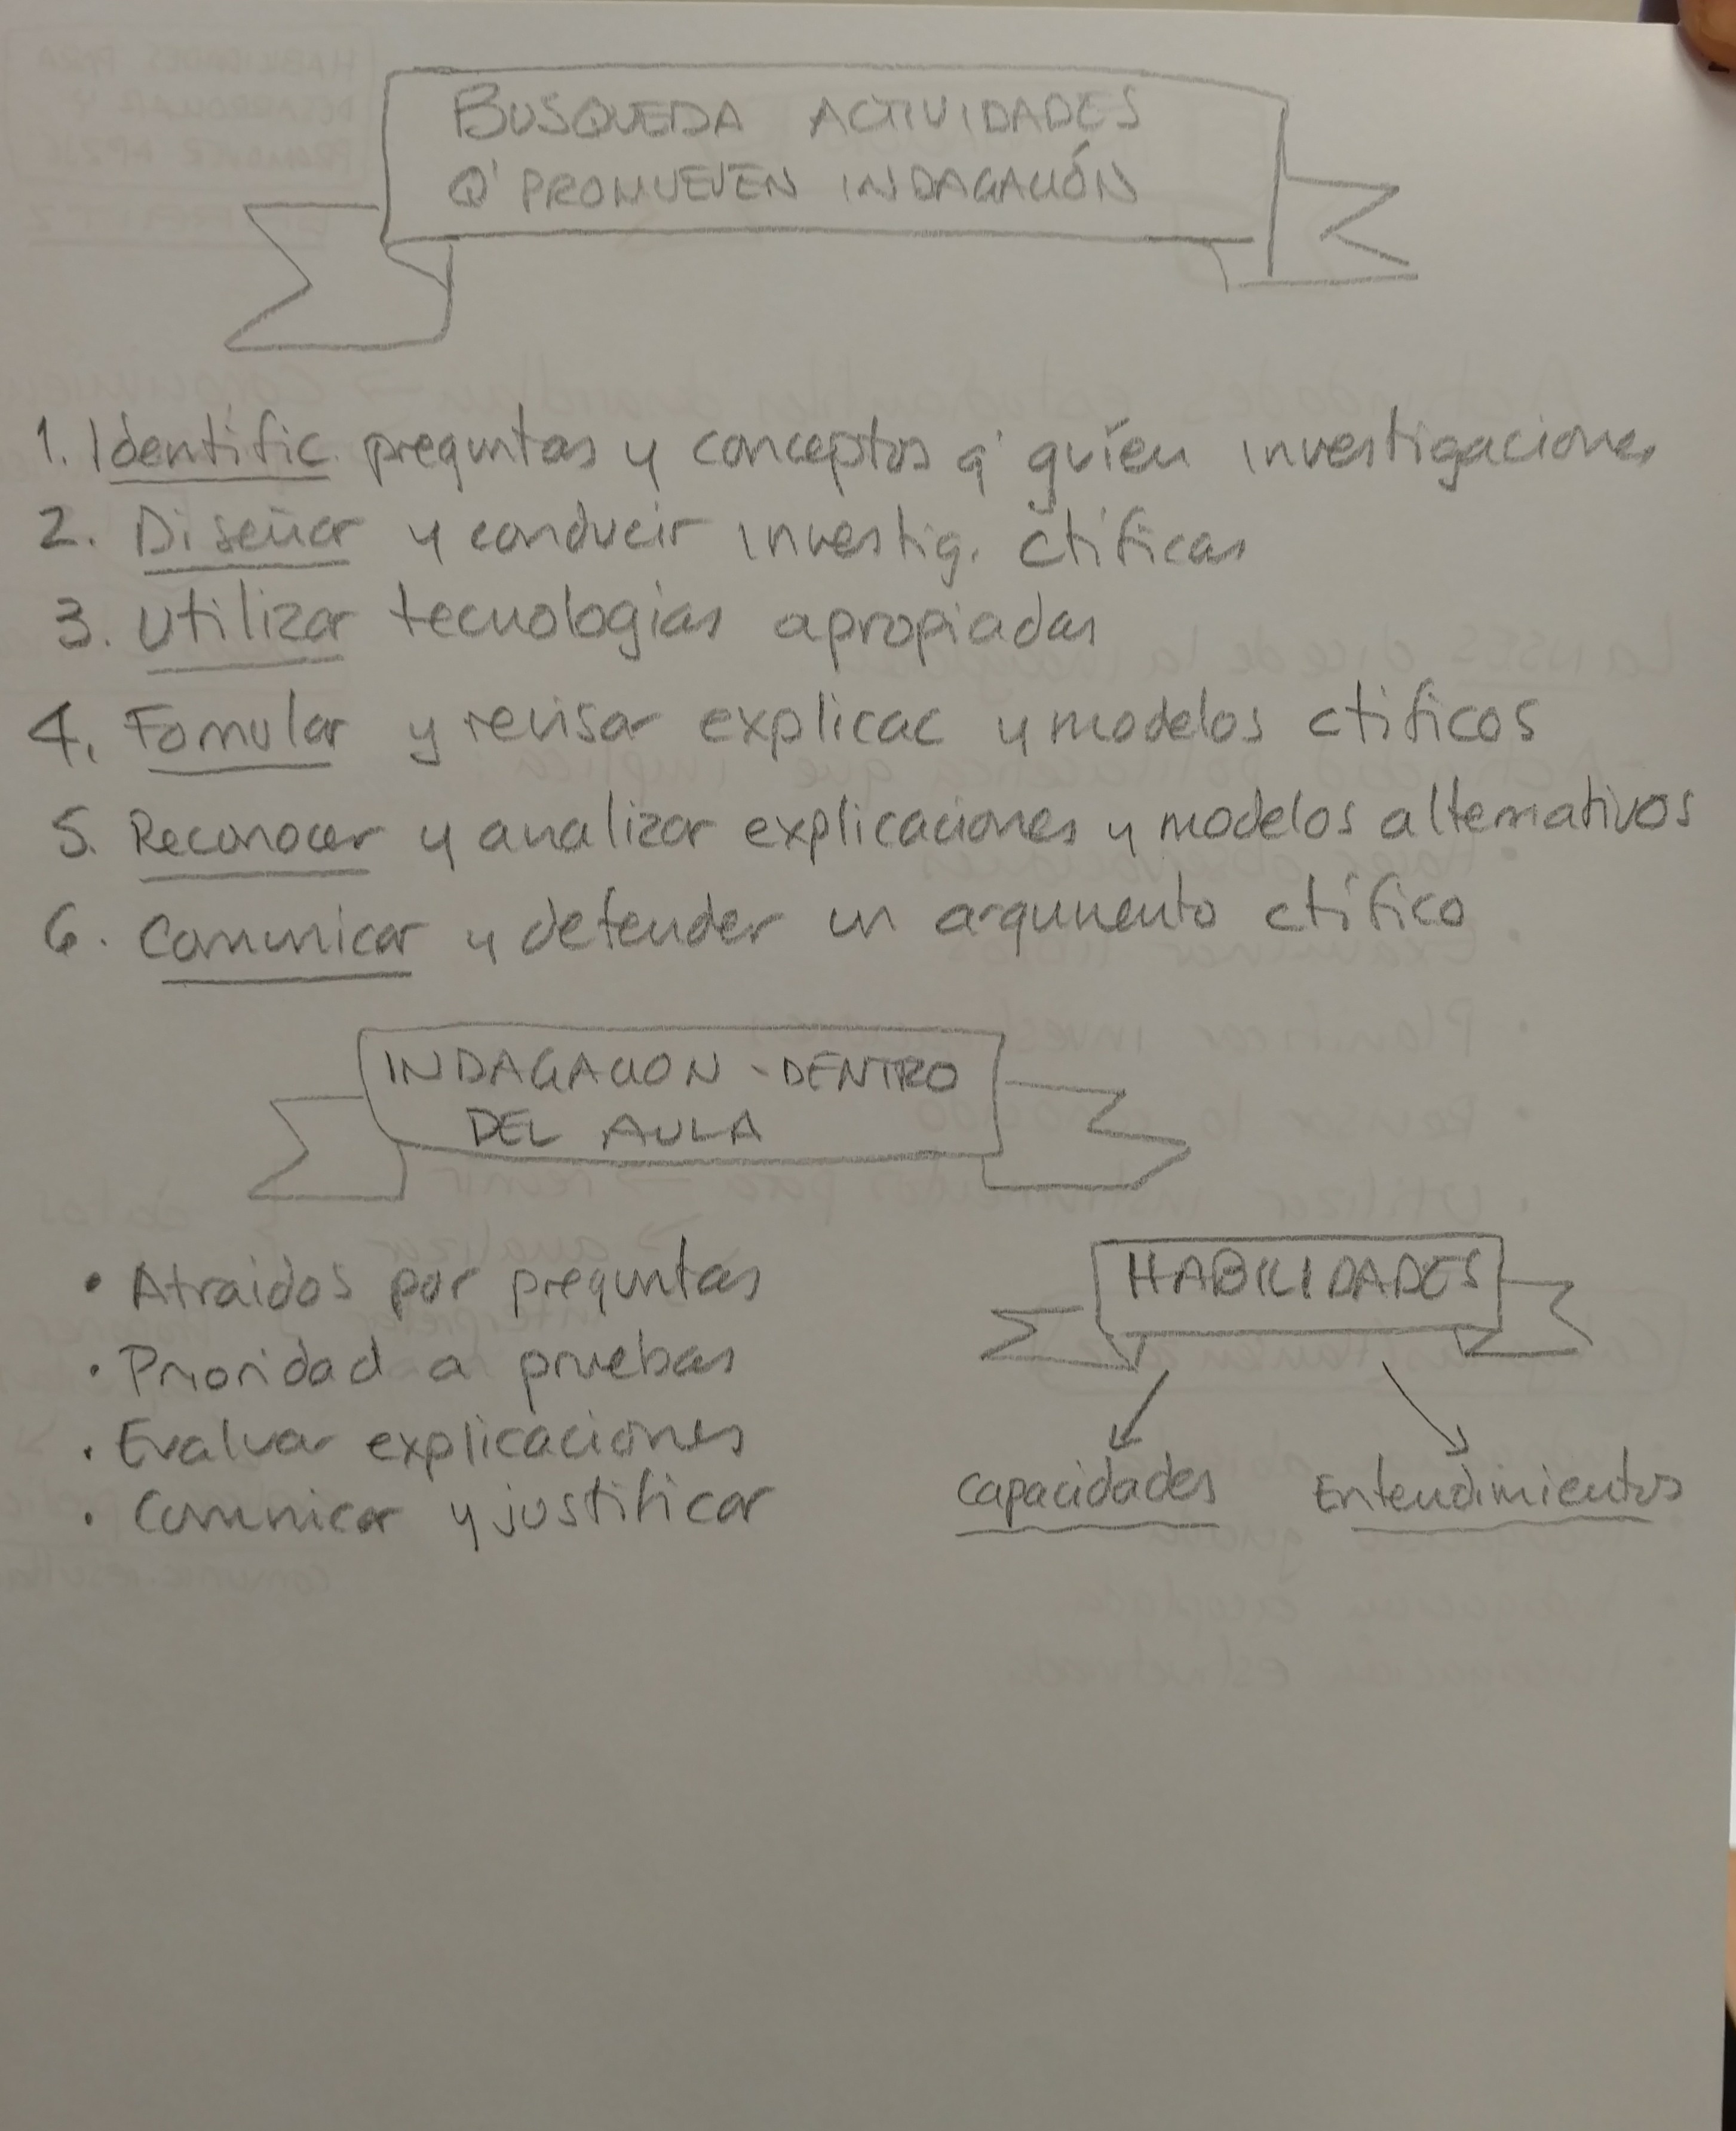 BUSQUEDA ACTIVIDADES
Q' PROMUEVEN INDAGACIÓN
1. Identific. preguntas y conceptos q' guíen investigaciones
2. Diseñar y conducir investig. ctíficas
3. Utilizar tecnologías apropiadas
4. Fomular y revisar explicac y modelos ctíficos
5. Reconocer y analizar explicaciones y modelos alternativos
6. Comunicar y defender un argumento ctífico
INDAGACION - DENTRO
DEL AULA
• Atraidos por preguntas
• Prioridad a pruebas
• Evaluar explicaciones
• Comunicar y justificar
HABILIDADES
Capacidades Entendimientos